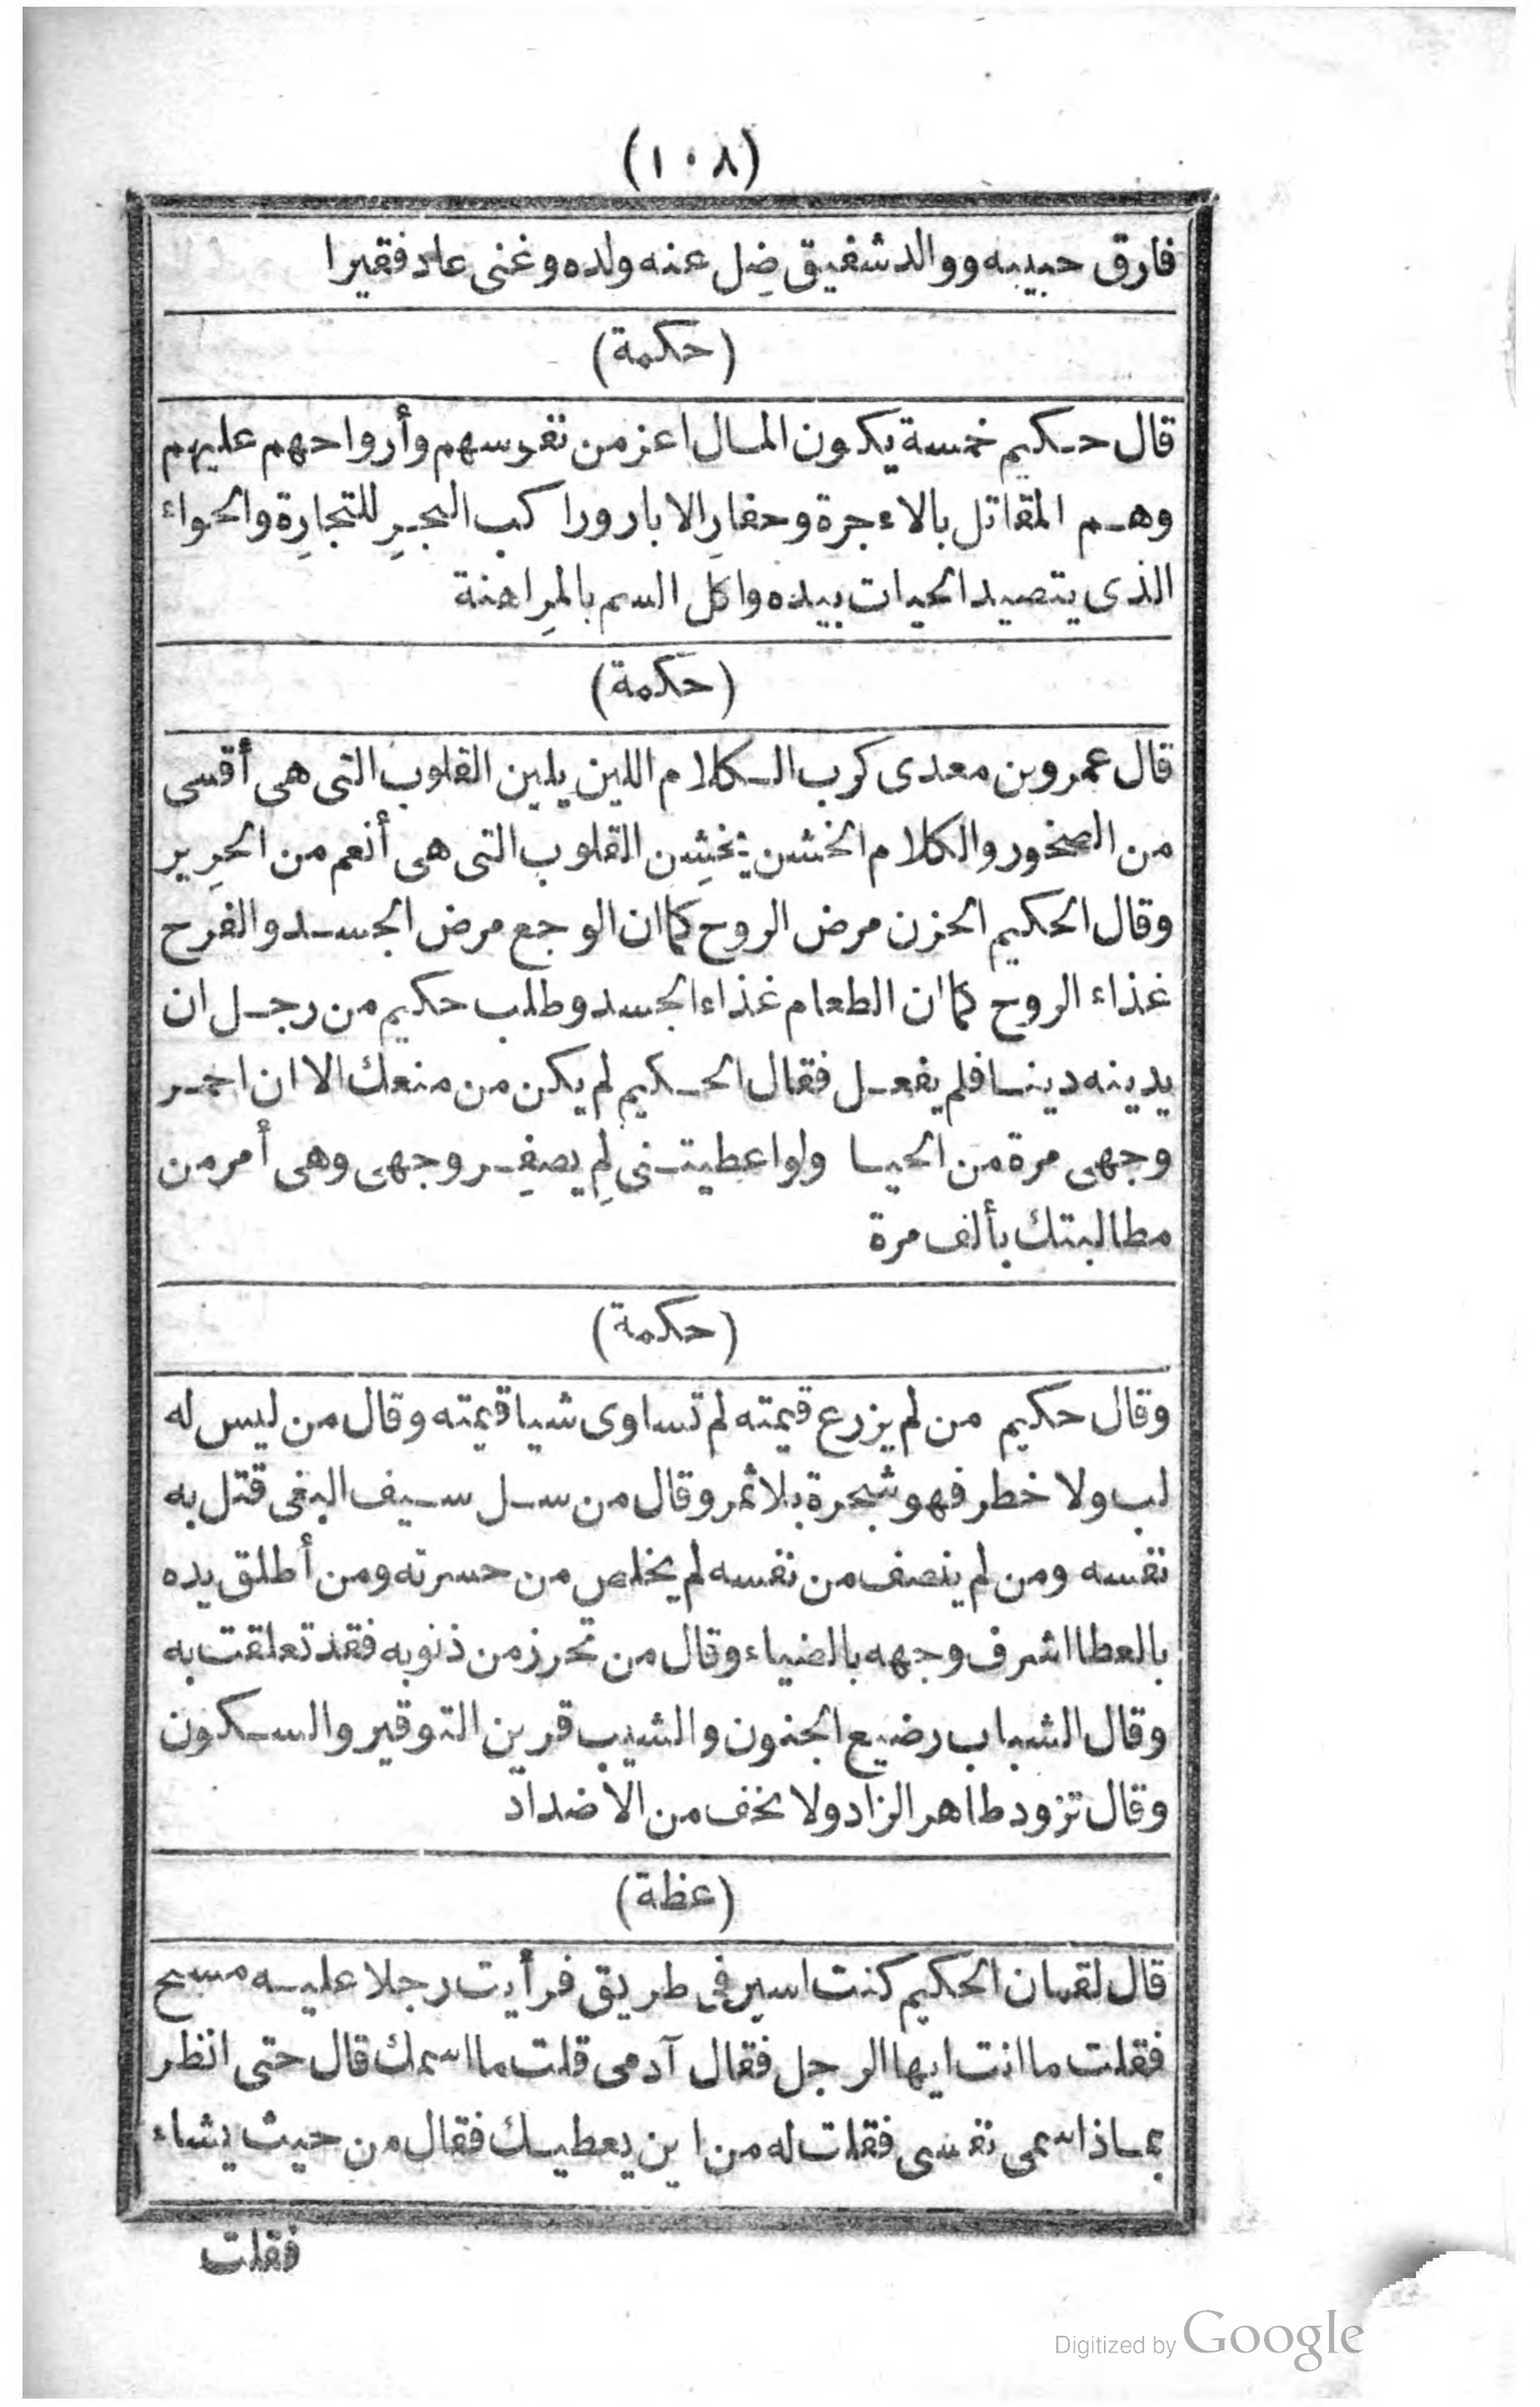 (١٠٨)
فارق حبيبه ووالد شفيق ضل عنه ولده وغنى عاد فقيرا
(حكمة)
قال حكيم خمسة يكون المال اعز من نفوسهم وأرواحهم عليهم
وهم المقاتل بالاءجرة وحفار الابار وراكب البحر للتجارة والحواء
الذى يتصيد الحيات بيده واكل السم بالمراهنة
(حكمة)
قال عمرو بن معدى كرب الكلام اللين يلين القلوب التى هى أقسى
من الصخور والكلام الخشن يخشن القلوب التى هى أنعم من الحرير
وقال الحكيم الحزن مرض الروح كما ان الوجع مرض الجسد والفرح
غذاء الروح كما ان الطعام غذاء الجسد وطلب حكيم من رجل ان
يدينه دينا فلم يفعل فقال الحكيم لم يكن من منعك الا ان احمر
وجهى مرة من الحيا ولو اعطيتنى لم يصفر وجهى وهى أمر من
مطالبتك بألف مرة
(حكمة)
وقال حكيم من لم يزرع قيمته لم تساوى شيا قيمته وقال من ليس له
لب ولا خطر فهو شجرة بلا ثمر وقال من سل سيف البغى قتل به
نفسه ومن لم ينصف من نفسه لم يخلص من حسرته ومن أطلق يده
بالعطا اشرف وجهه بالضياء وقال من تحرز من ذنوبه فقد تعلقت به
وقال الشباب رضيع الجنون والشيب قرين التوقير والسكون
وقال تزود طاهر الزاد ولا تخف من الاضداد
(عظة)
قال لقمان الحكيم كنت اسير فى طريق فرأيت رجلا عليه مسح
فقلت ما انت ايها الرجل فقال آدمى قلت ما اسمك قال حتى انظر
بماذا سمى نفسى فقلت له من اين يعطيك فقال من حيث يشاء
فقلت
Digitized by Google